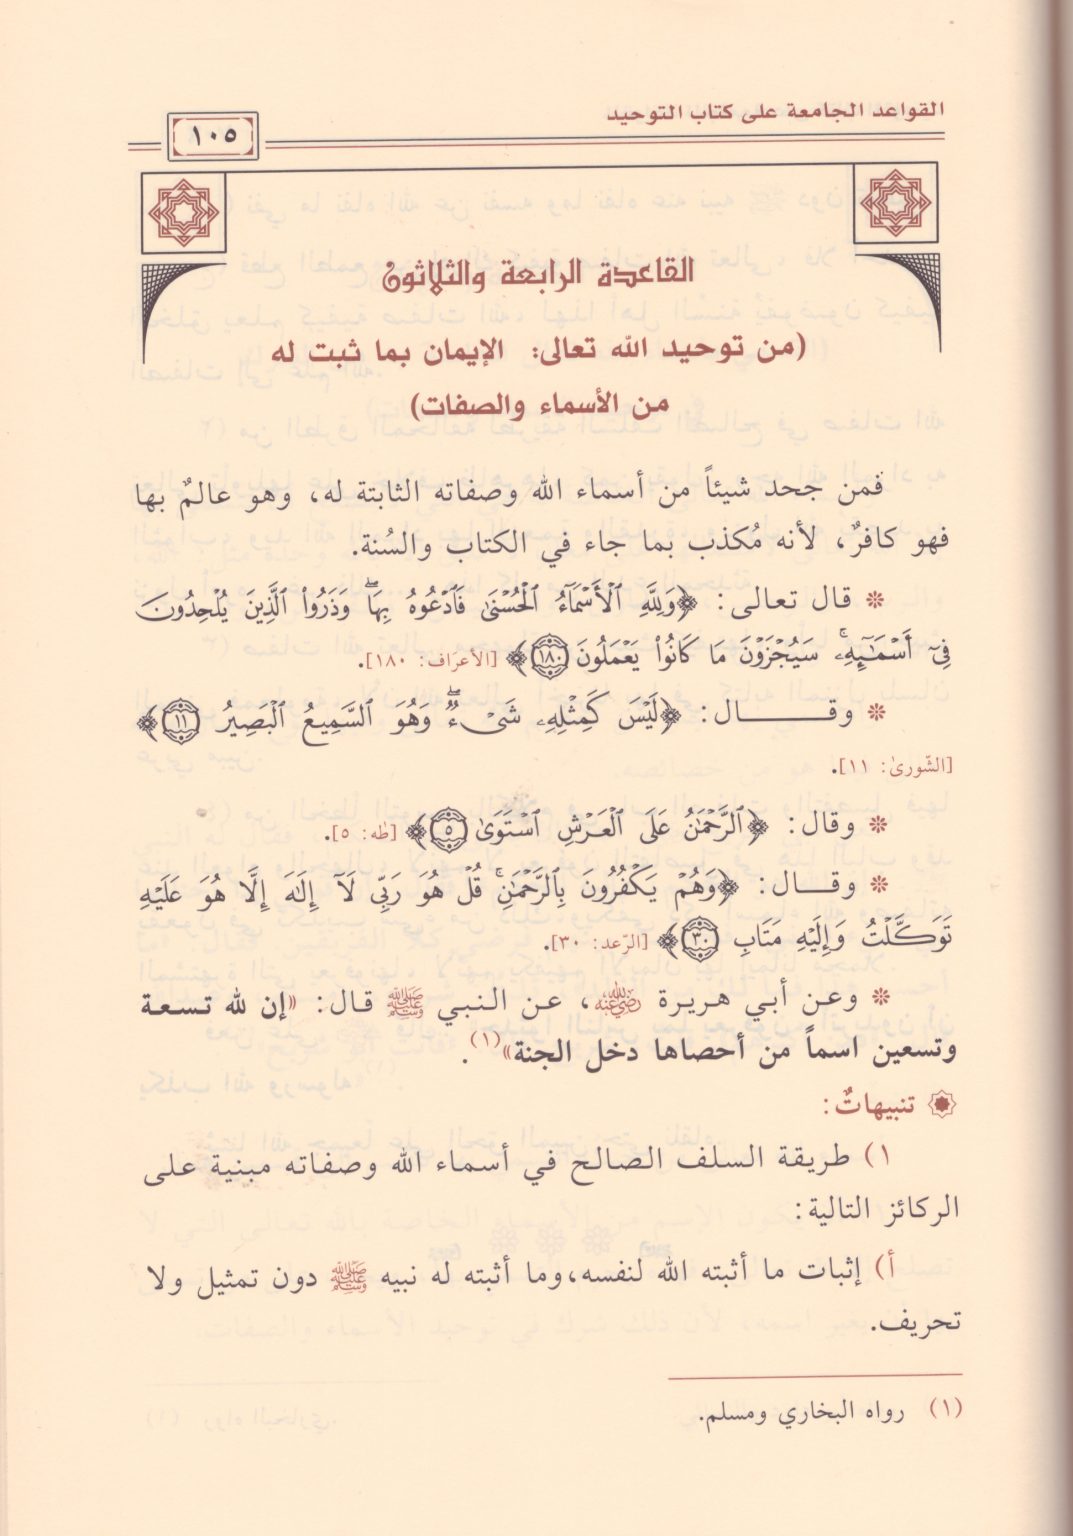 القواعد الجامعة على كتاب التوحيد
١٠٥
القاعدة الرابعة والثلاثون
(من توحيد الله تعالى: الإيمان بما ثبت له
من الأسماء والصفات)
فمن جحد شيئاً من أسماء الله وصفاته الثابتة له، وهو عالمٌ بها
فهو كافرٌ، لأنه مُكذب بما جاء في الكتاب والسُنة.
* قال تعالى: ﴿وَلِلَّهِ ٱلْأَسْمَآءُ ٱلْحُسْنَىٰ فَٱدْعُوهُ بِهَا ۖ وَذَرُوا۟ ٱلَّذِينَ يُلْحِدُونَ
فِىٓ أَسْمَـٰٓئِهِۦ ۚ سَيُجْزَوْنَ مَا كَانُوا۟ يَعْمَلُونَ ١٨٠﴾ [الأعرَاف: ١٨٠].
* وقـــــال: ﴿لَيْسَ كَمِثْلِهِۦ شَىْءٌ ۖ وَهُوَ ٱلسَّمِيعُ ٱلْبَصِيرُ ١١﴾
[الشّورىٰ: ١١].
* وقال: ﴿ٱلرَّحْمَـٰنُ عَلَى ٱلْعَرْشِ ٱسْتَوَىٰ ٥﴾ [طٰه: ٥].
* وقـــال: ﴿وَهُمْ يَكْفُرُونَ بِٱلرَّحْمَـٰنِ ۚ قُلْ هُوَ رَبِّى لَآ إِلَـٰهَ إِلَّا هُوَ عَلَيْهِ
تَوَكَّلْتُ وَإِلَيْهِ مَتَابِ ٣٠﴾ [الرّعد: ٣٠].
* وعن أبي هريرة رضي الله عنه، عن النبي ﷺ قال: «إن لله تسعة
وتسعين اسماً من أحصاها دخل الجنة»(١).
تنبيهاتٌ:
١) طريقة السلف الصالح في أسماء الله وصفاته مبنية على
الركائز التالية:
أ) إثبات ما أثبته الله لنفسه،وما أثبته له نبيه ﷺ دون تمثيل ولا
تحريف.
(١) رواه البخاري ومسلم.